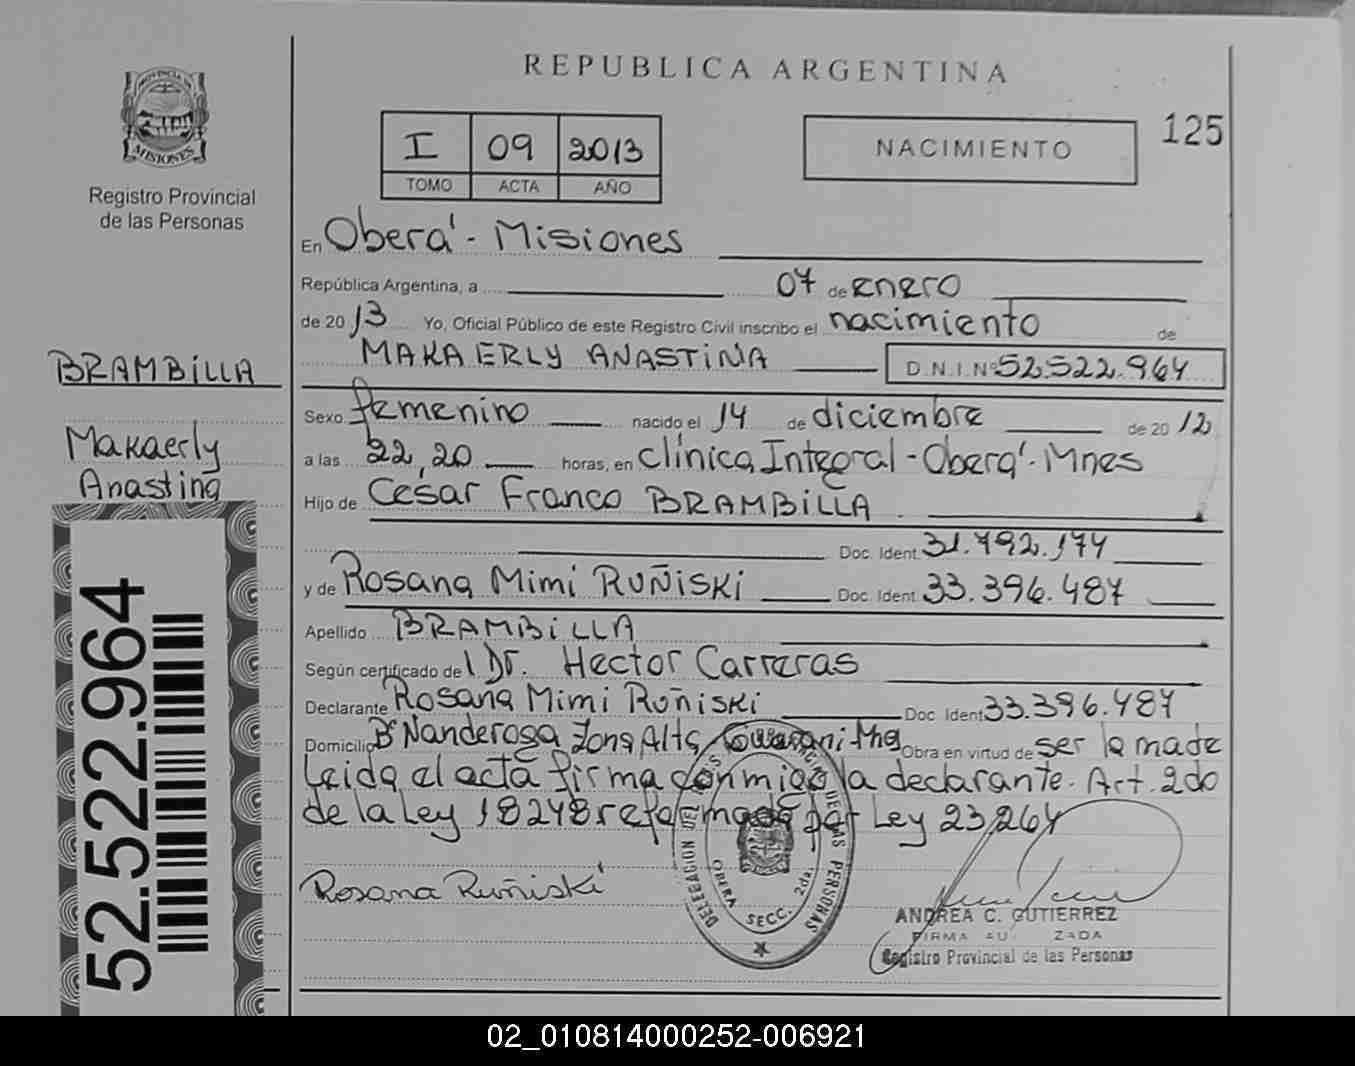 REPUBLICA ARGENTINA
PROVINCIA DE
MISIONES
Registro Provincial
de las Personas
I 09 2013
TOMO ACTA AÑO
NACIMIENTO
125
En Oberá - Misiones
República Argentina, a 07 de enero
de 20 13 Yo, Oficial Público de este Registro Civil inscribo el nacimiento de
MAKAERLY ANASTINA D.N.I. Nº 52.522.964
BRAMBILLA
Makaerly
Anastina
52.522.964
Sexo femenino nacido el 14 de diciembre de 20 12
a las 22,20 horas, en clínica Integral - Oberá - Mnes
Hijo de Cesar Franco BRAMBILLA
Doc. Ident. 31.792.174
y de Rosana Mimi RUÑISKI Doc. Ident. 33.396.487
Apellido BRAMBILLA
Según certificado de l Dr. Hector Carreras
Declarante Rosana Mimi Ruñiski Doc Ident 33.396.487
Domicilio Bº Nanderoga Zona Alta Obra en virtud de ser la madre
Leida el acta firma conmigo la declarante. Art. 2do
de la Ley 18248 reformada por Ley 23264
Rosana Ruñiski
DELEGACION DE LAS PERSONAS
OBERA SECC. 2da.
ANDREA C. GUTIERREZ
FIRMA AU ZADA
Registro Provincial de las Personas
02_010814000252-006921